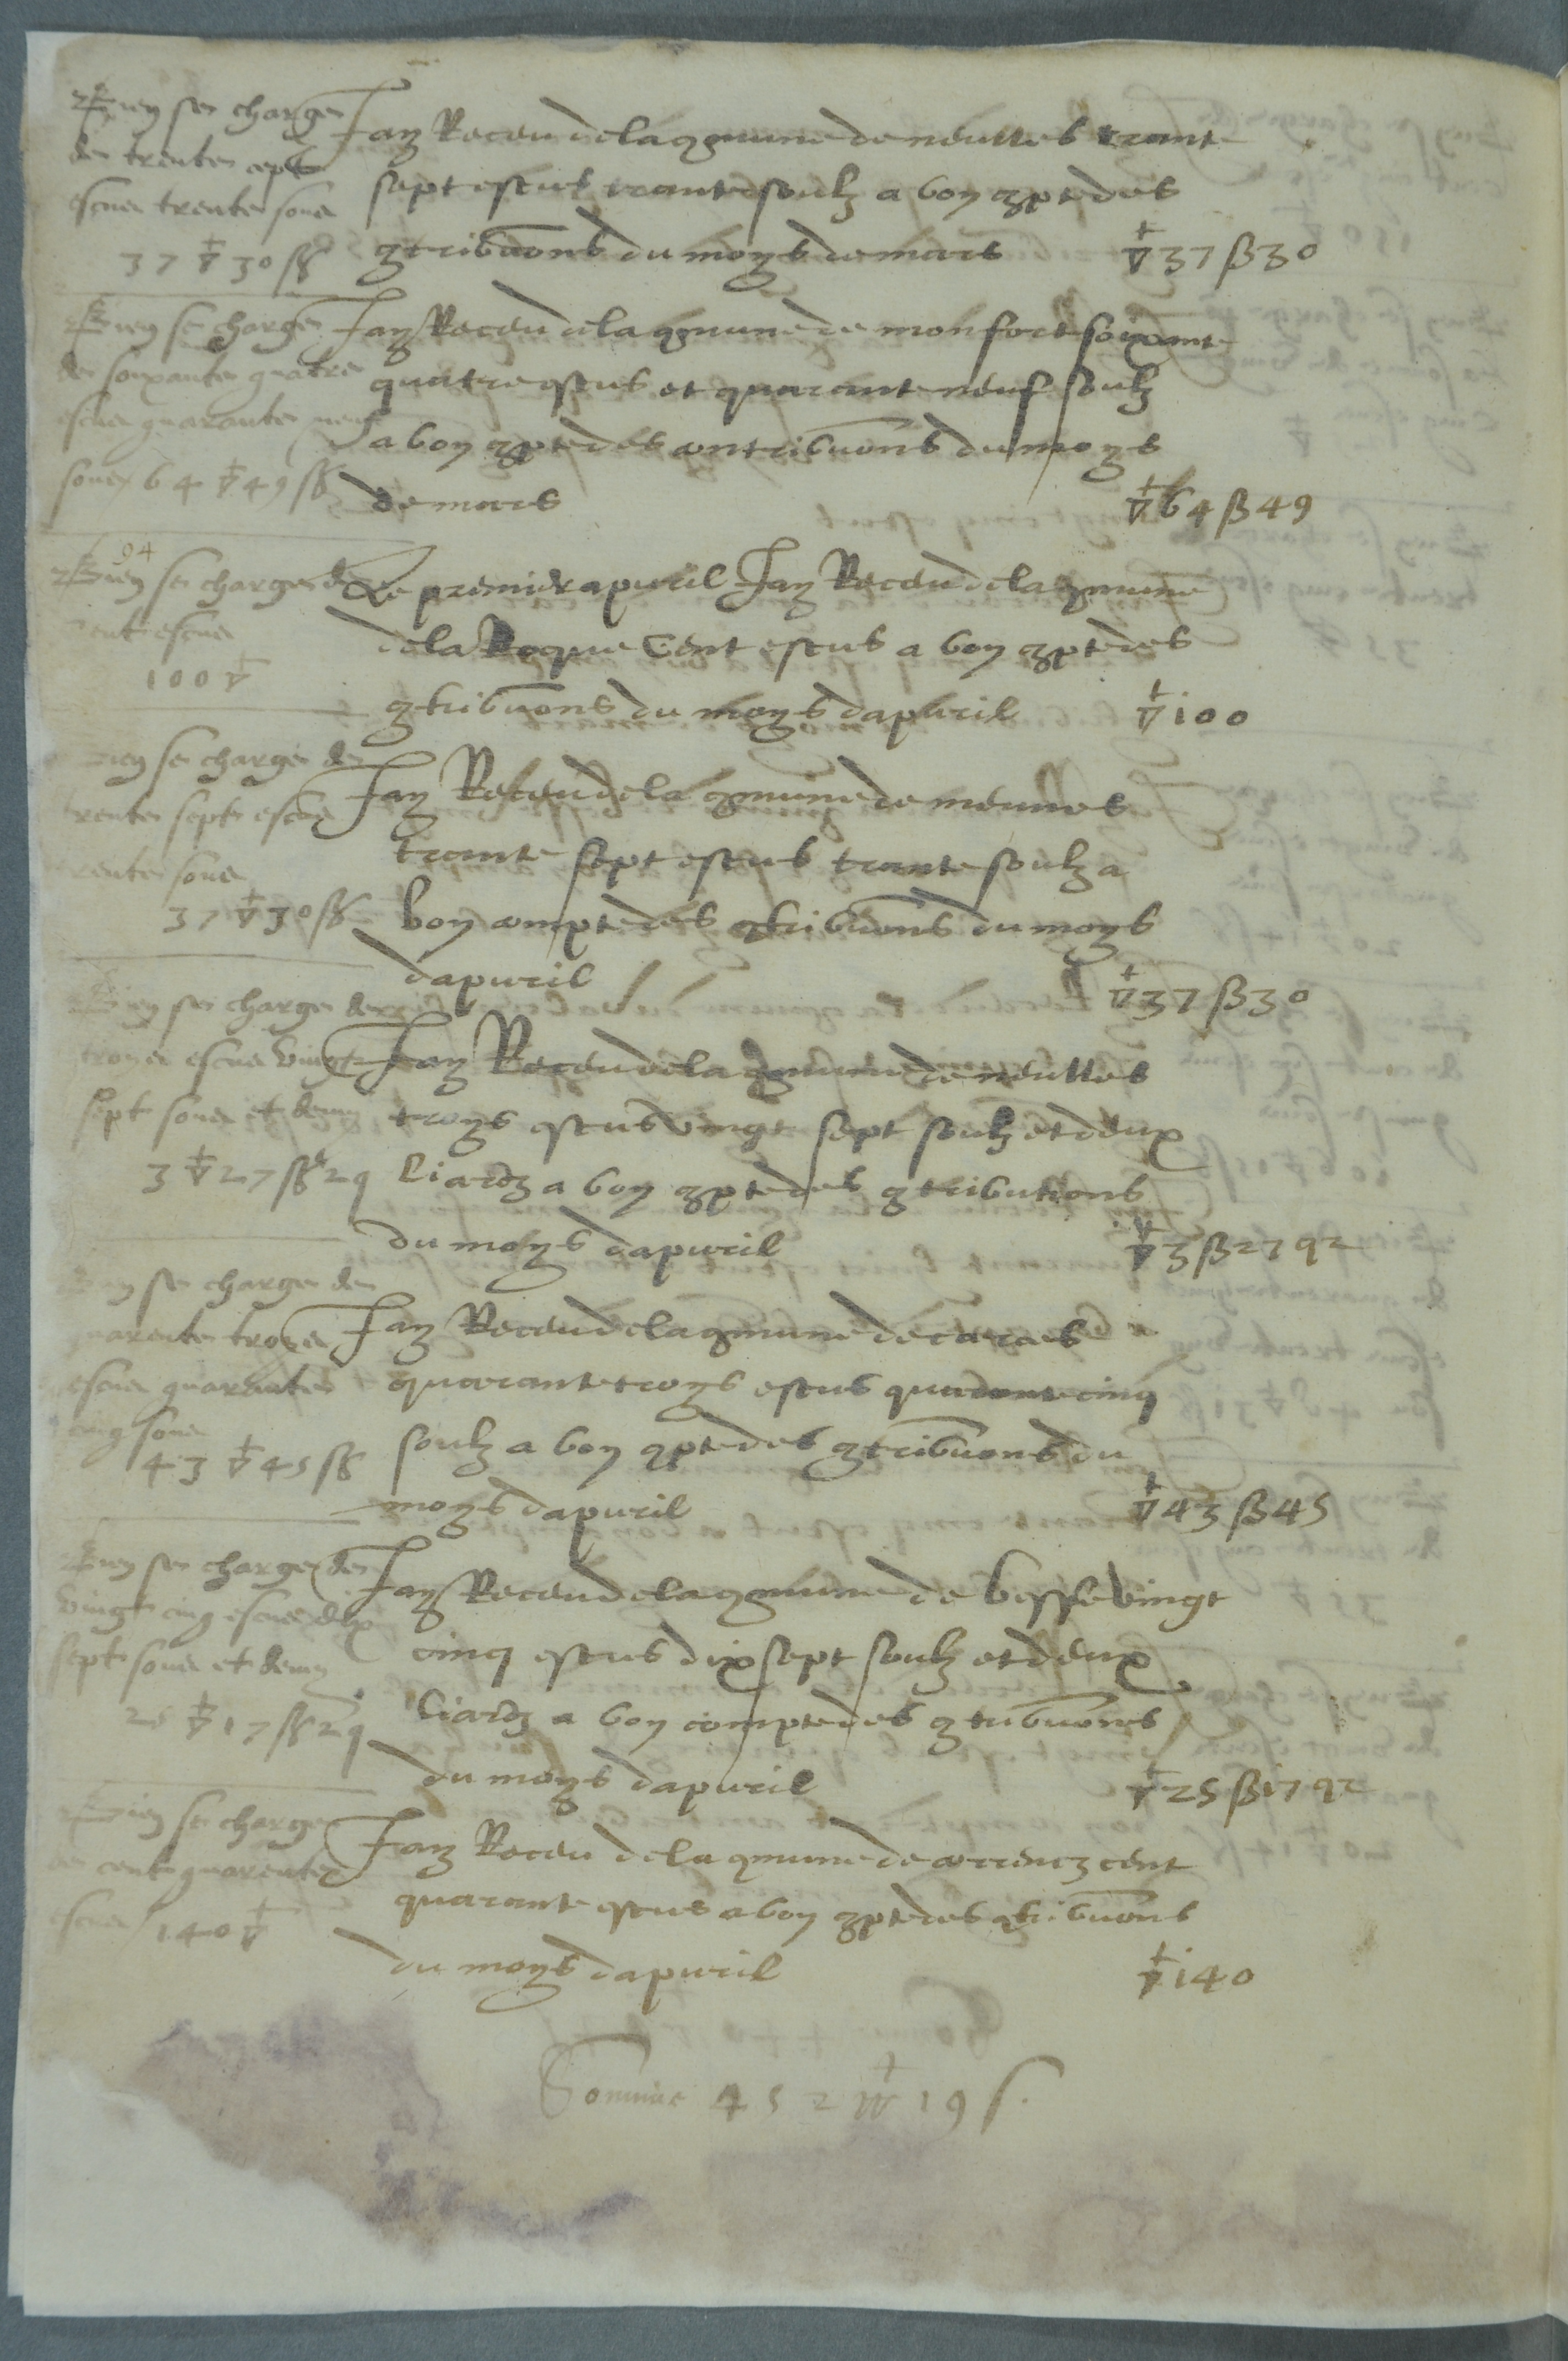 Bien se charge
de trente sept
escus trente souz
37 ▽ 30 ß
Jay Receu de la cõmune de neulles trante
sept escus trante soulz a bon cõpte des
cõtribuõns du moys de mars ▽ 37 ß 30
Bien se charge
de soixante quatre
escus quarante neuf
souz 64 ▽ 49 ß
Jay Receu de la cõmune de monfort soixante
quatre escus et quarante neuf soulz
a bon cõpte des contribuõns du moys
de mars ▽ 64 ß 49
Bien se charge de
cent escus
100 ▽
Le premier apuril Jay Receu de la cõmune
de la Roque Cent escus a bon cõpte des
cõtribuõns du moys dapuril ▽ 100
Bien se charge de
trente sept escus
trente souz
37 ▽ 30 ß
Jay Receu de la cõmune de meunes
trante sept escus trante soulz a
bon compte des cõtribuõns du moys
dapuril ▽ 37 ß 30
Bien se charge de
troys escus vingt
sept souz et demy
3 ▽ 27 ß 2 q
Jay Receu de la cõmune de neulles
troys escus vingt sept soulz et deux
Liardz a bon cõpte des cõtributions
du moys dapuril ▽ 3 ß 27 q 2
Bien se charge de
quarente troys
escus quarante
cinq souz
43 ▽ 45 ß
Jay Receu de la cõmune de caraes
quarante troys escus quarante cinq
soulz a bon cõpte des cõtribuõns du
moys dapuril ▽ 43 ß 45
Bien se charge de
vingt cinq escus dix
sept souz et demy
25 ▽ 17 ß 2 q
Jay Receu de la cõmune de besse vingt
cinq escus dix sept soulz et deux
Liardz a bon compte des cõtribuõns
du moys dapuril ▽ 25 ß 17 q 2
Bien se charge
de cent quarente
escus 140 ▽
Jay Receu de la cõmune de correncz cent
quarante escus a bon cõpte des cõtribuõns
du moys dapuril ▽ 140
Somme 452 ▽ 19 s.